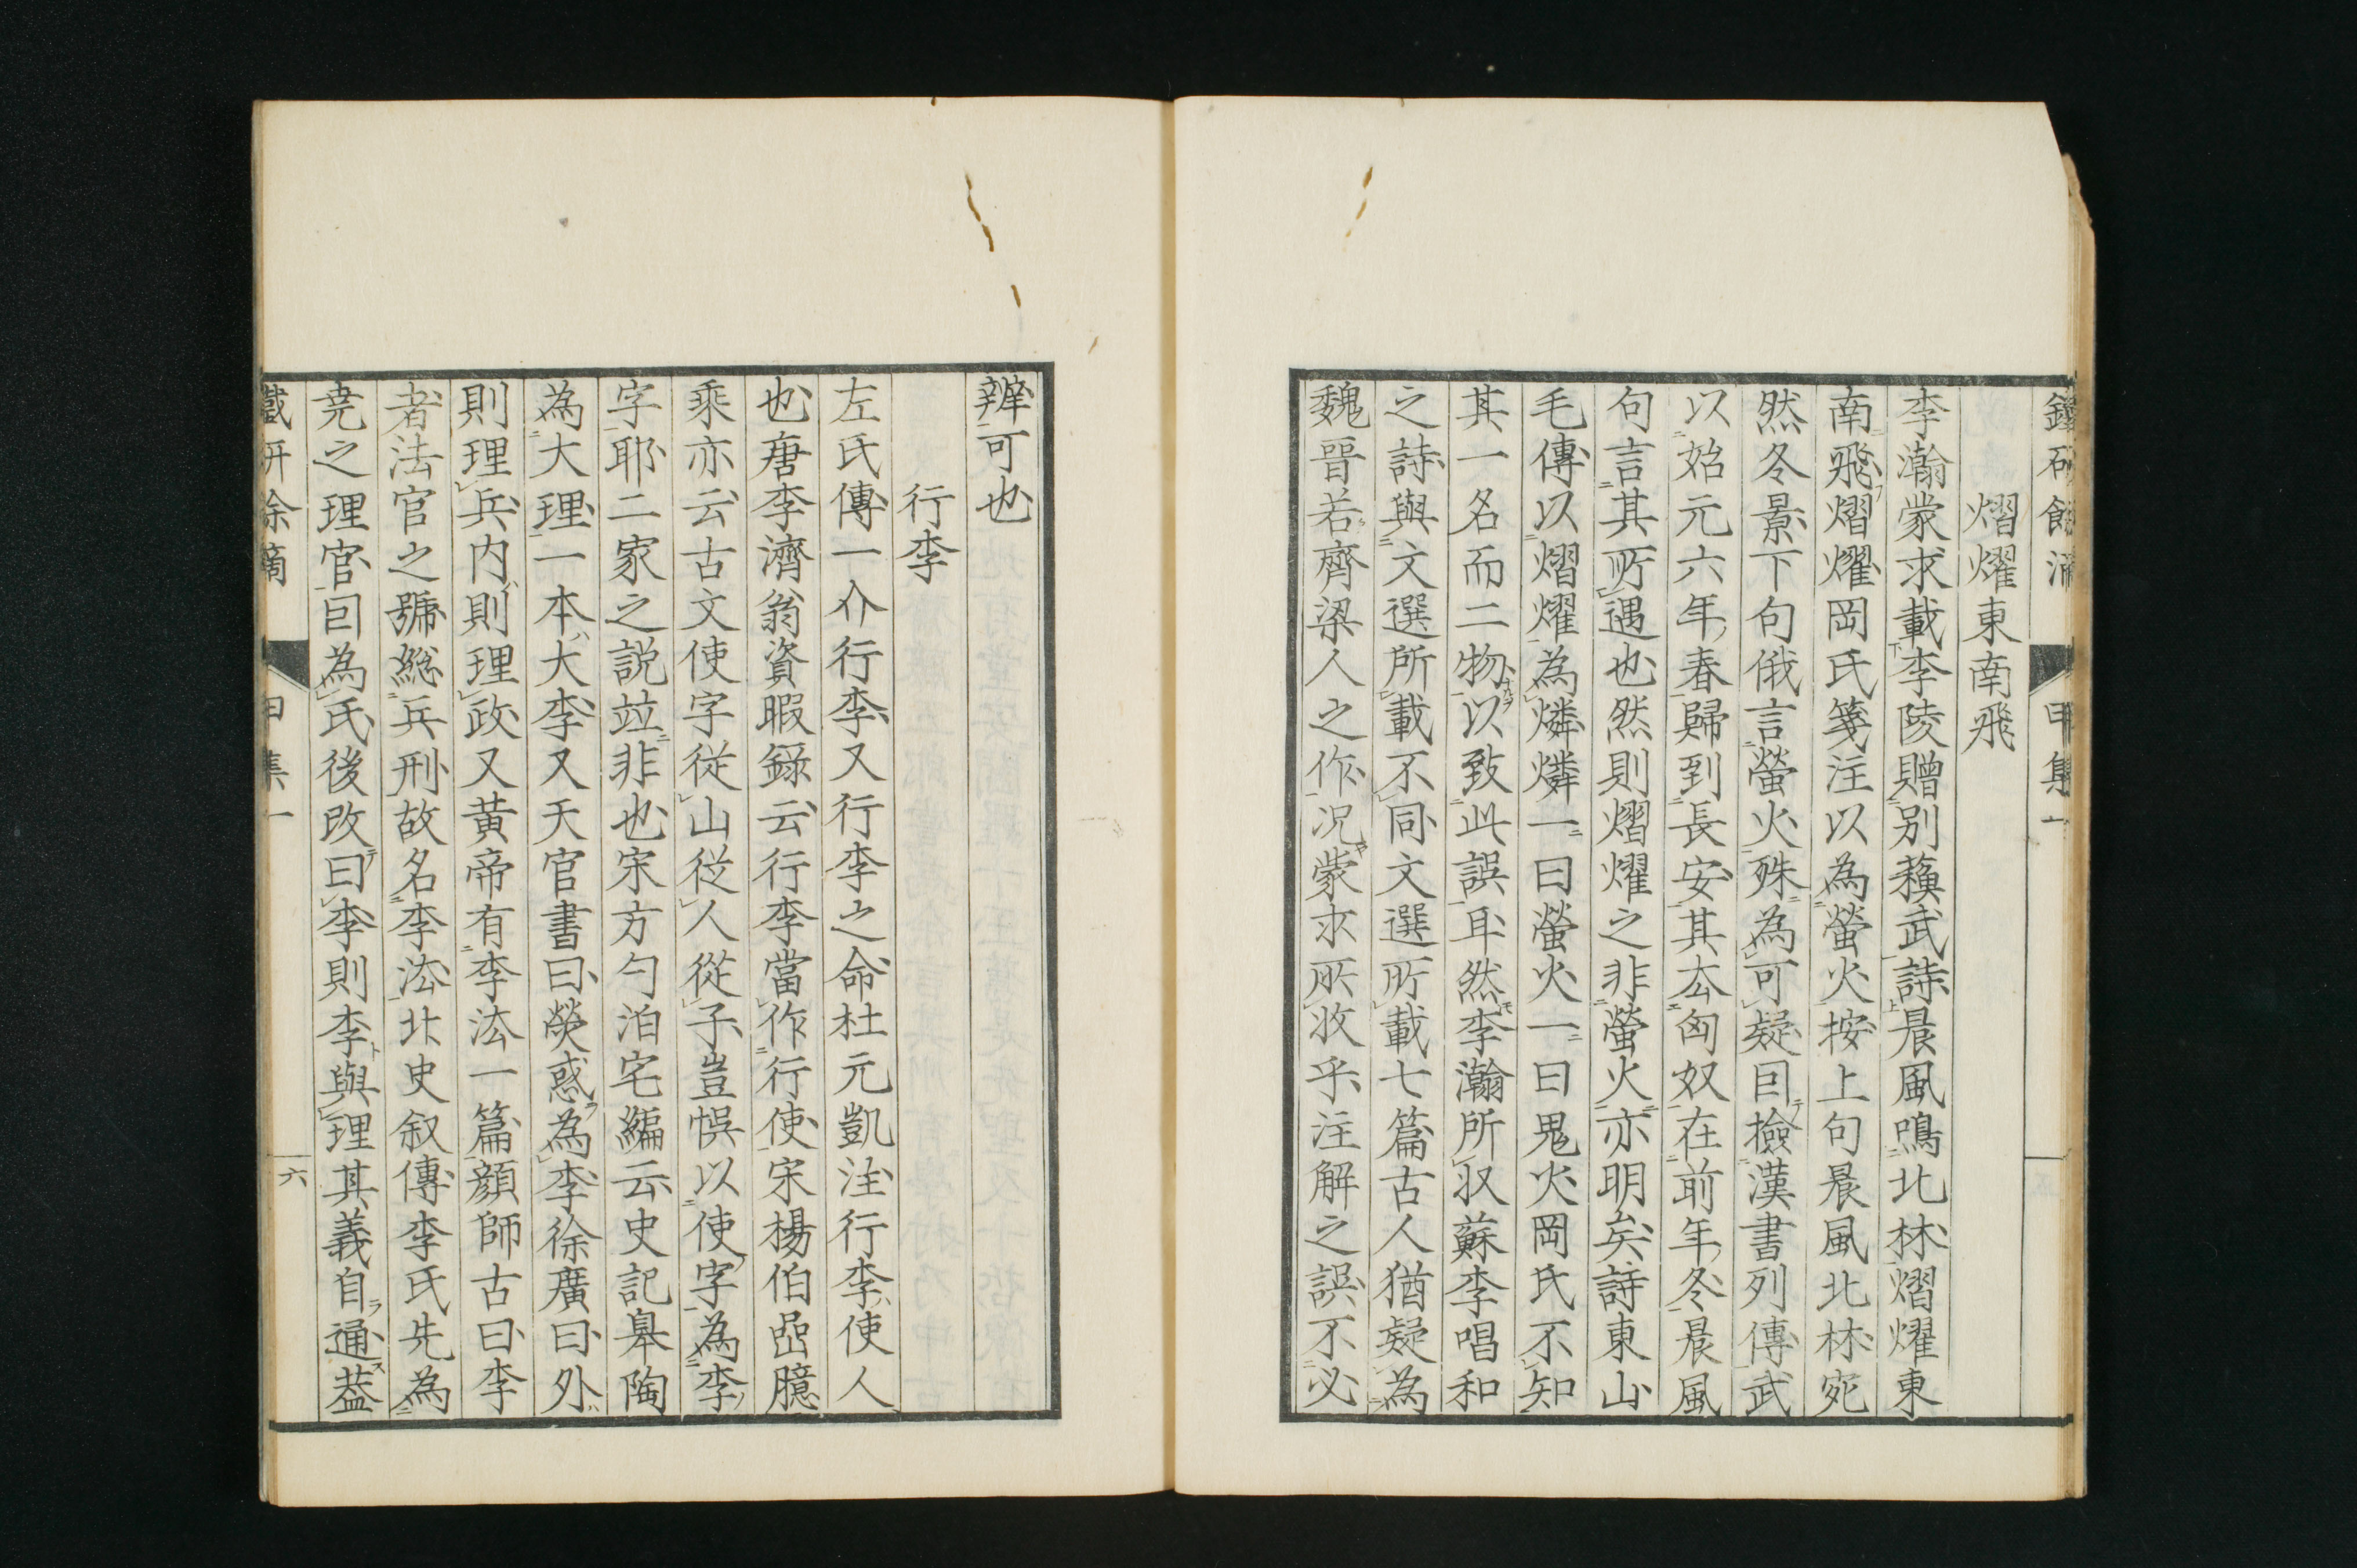 熠燿東南飛
李瀚蒙求載李陵贈別蘓武詩晨風鳴北林熠燿東
南飛熠燿岡氏箋注以為螢火按上句晨風北林宛
然冬景下句俄言螢火殊為可疑因撿漢書列傳武
以始元六年春歸到長安其去匈奴在前年冬晨風
句言其所遇也然則熠燿之非螢火亦明矣詩東山
毛傳以熠燿為燐燐一曰螢火一曰鬼火岡氏不知
其一名而二物以致此誤耳然李瀚所収蘇李唱和
之詩與文選所載不同文選所載七篇古人猶疑為
魏晋若齊梁人之作况蒙求所收乎注解之誤不必
辨可也
行李
左氏傳一介行李又行李之命杜元凱注行李使人
也唐李濟翁資暇錄云行李當作行使宋楊伯嵒臆
乘亦云古文使字從山從人從子豈悞以使字為李
字耶二家之説竝非也宋方勺泊宅編云史記皋陶
為大理一本大李又天官書曰熒惑為李徐廣曰外
則理兵内則理政又黄帝有李法一篇顔師古曰李
者法官之號総兵刑故名李法北史叙傳李氏先為
尭之理官因為氏後改曰李則李與理其義自通葢
六